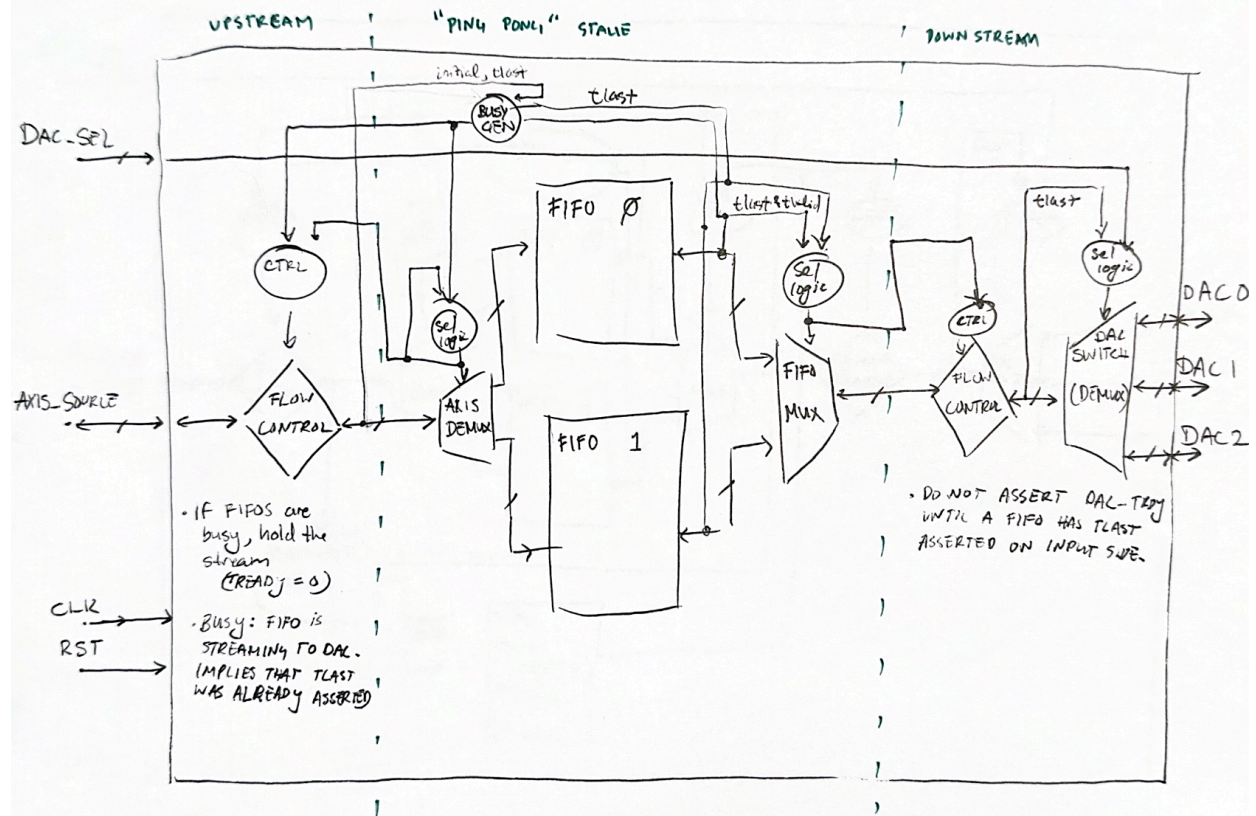 UPSTREAM
"PING PONG" STAGE
DOWNSTREAM
initial, tlast
BUSY
GEN
tlast
DAC_SEL
FIFO Ø
tlast & tvalid
tlast
CTRL
sel
logic
sel
logic
sel
logic
CTRL
DAC 0
DAC
SWITCH
(DEMUX)
DAC 1
DAC 2
AXIS_SOURCE
FLOW
CONTROL
AXIS
DEMUX
FIFO 1
FIFO
MUX
FLOW
CONTROL
· IF FIFOS are
busy, hold the
stream
(TREADY = 0)
· DO NOT ASSERT DAC_TRDY
UNTIL A FIFO HAS TLAST
ASSERTED ON INPUT SIDE.
CLK
RST
· BUSY: FIFO is
STREAMING TO DAC.
IMPLIES THAT TLAST
WAS ALREADY ASSERTED